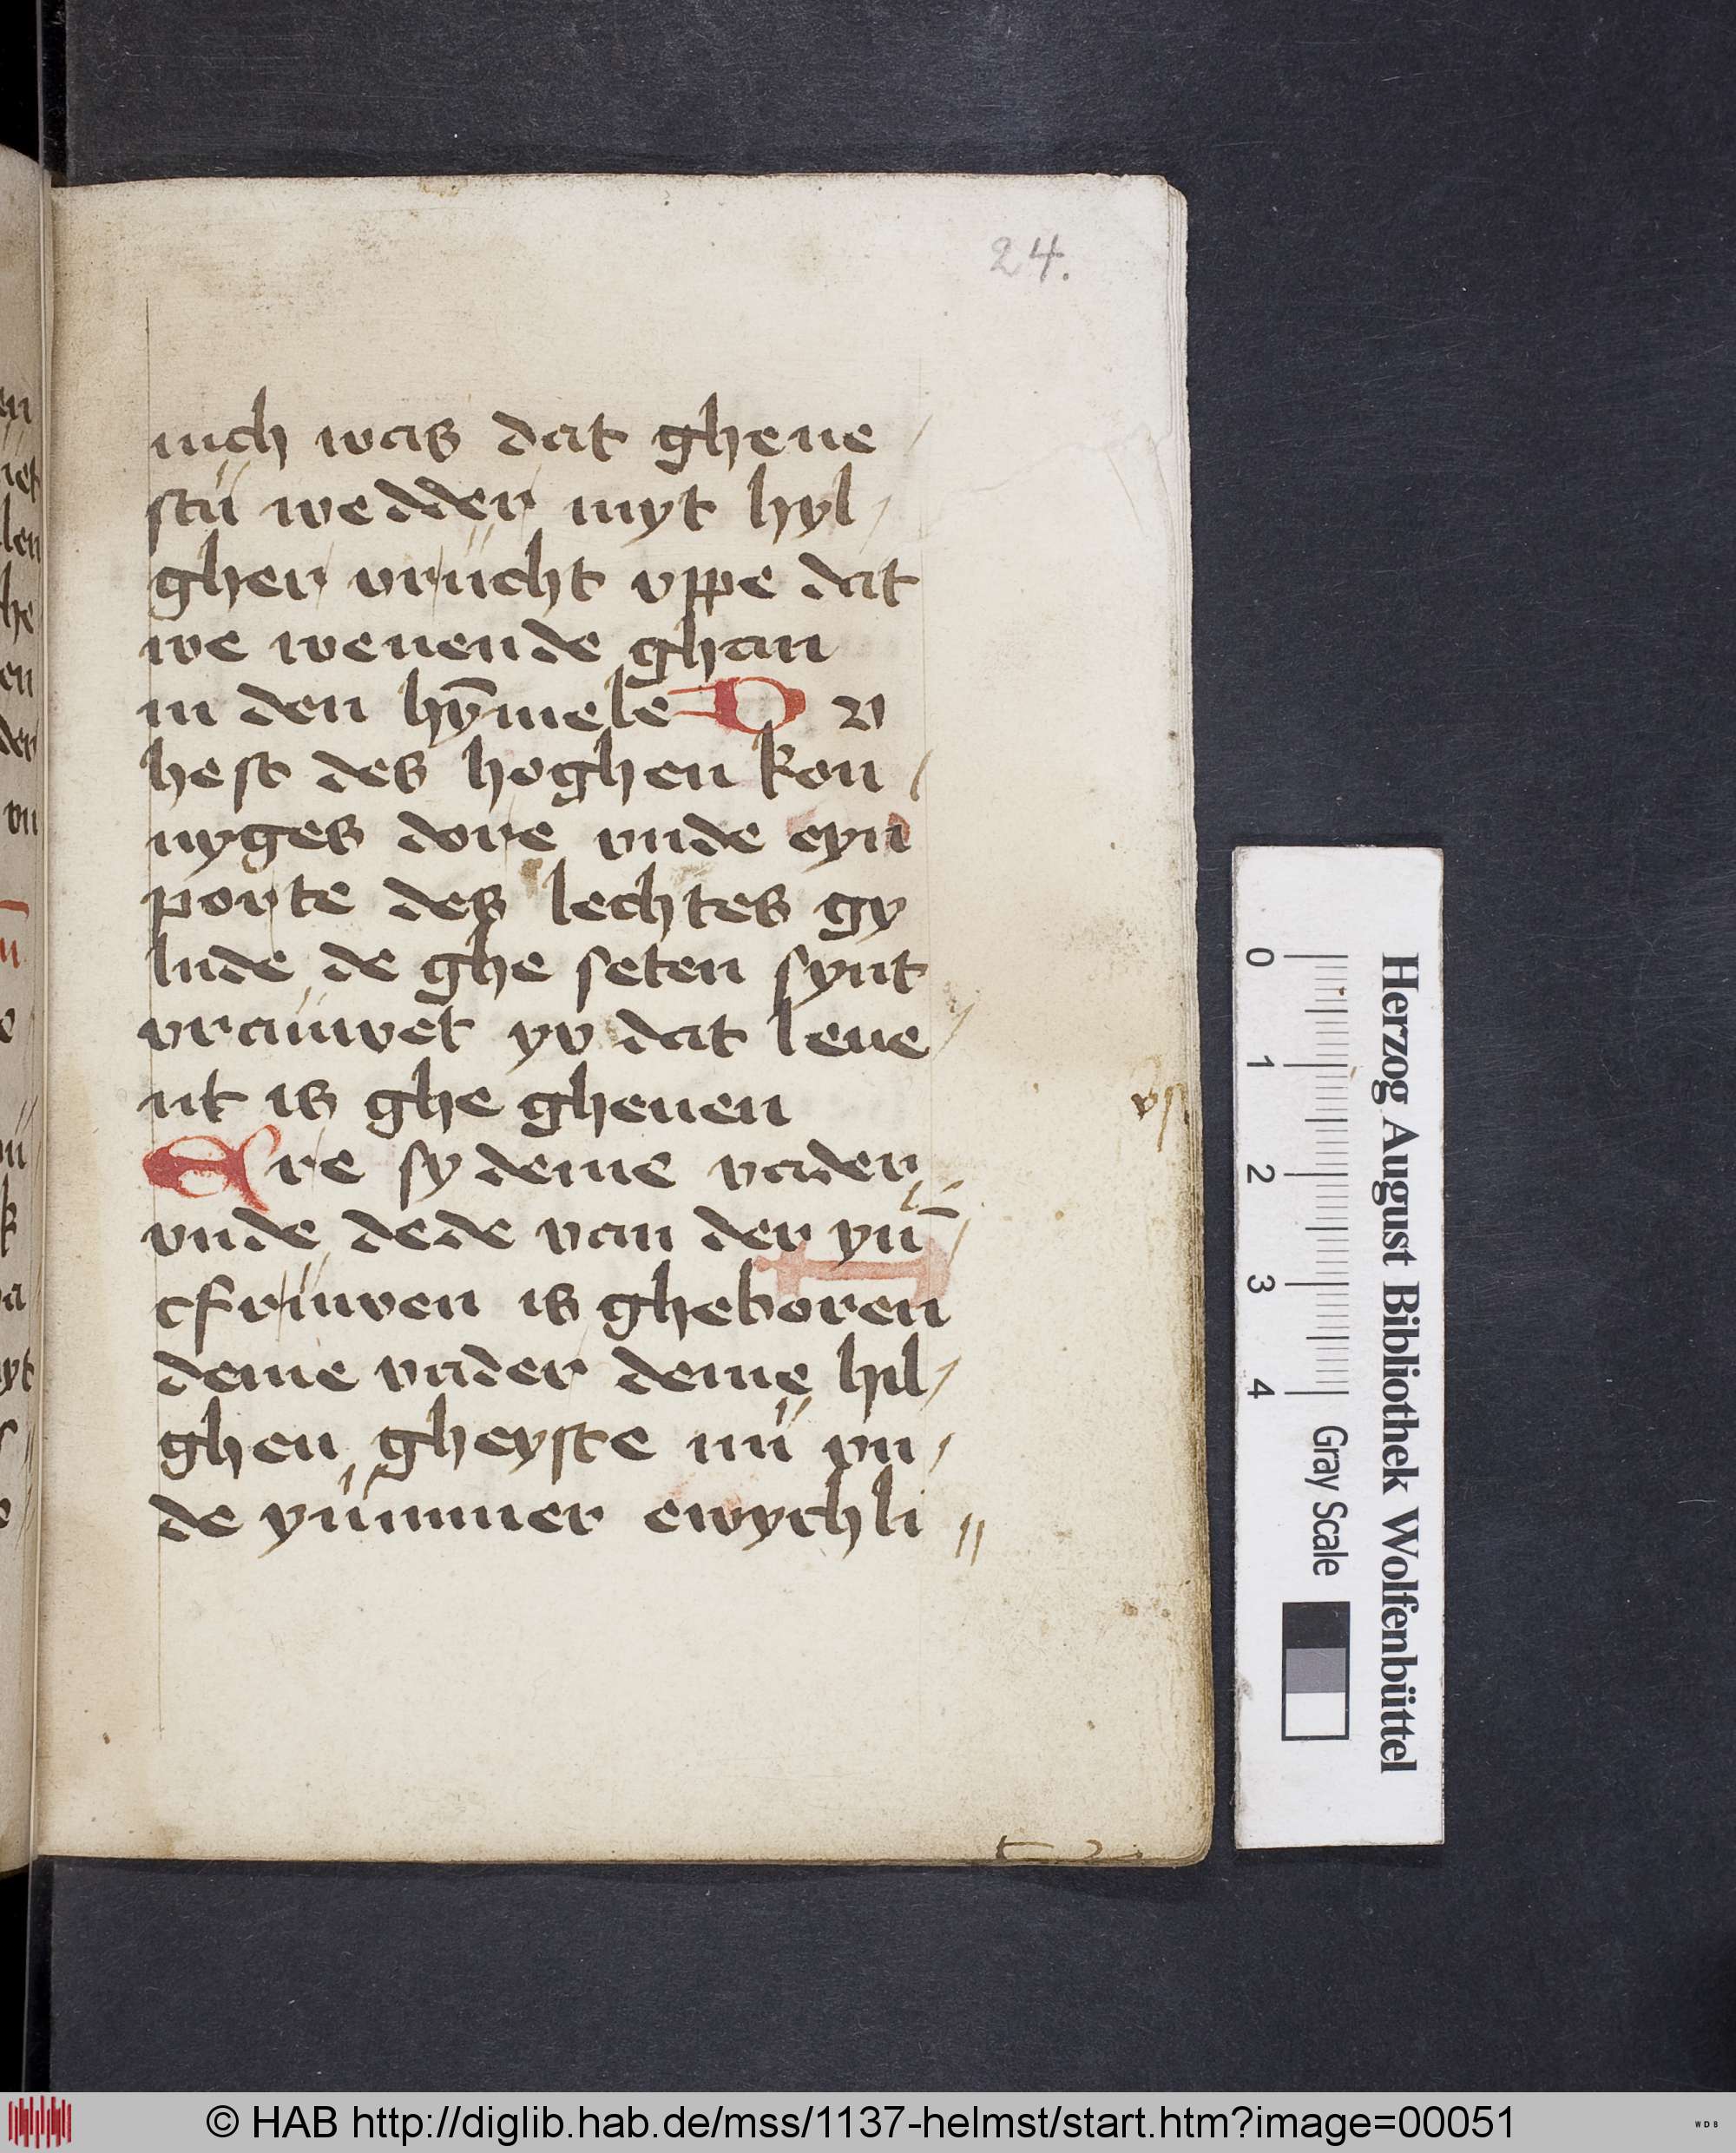 24.
nich was dat gheue
stü wedder myt hyl
gher vrücht vppe dat
we weuende ghan
in den hȳmele D v
hest des hoghen kon
nyges dore vnde eyn
porte des lechtes gy
lude de ghe seten synt
vraüwet yv dat leue
nt is ghe gheuen
Ere sy deme vader
vnde dede van der yn̄
cfrüwen is gheboren
deme vader deme hil
ghen gheyste nü vn
de yümmer ewychli
Herzog August Bibliothek Wolfenbüttel
0 1 2 3 4 Gray Scale
© HAB http://diglib.hab.de/mss/1137-helmst/start.htm?image=00051
WDB